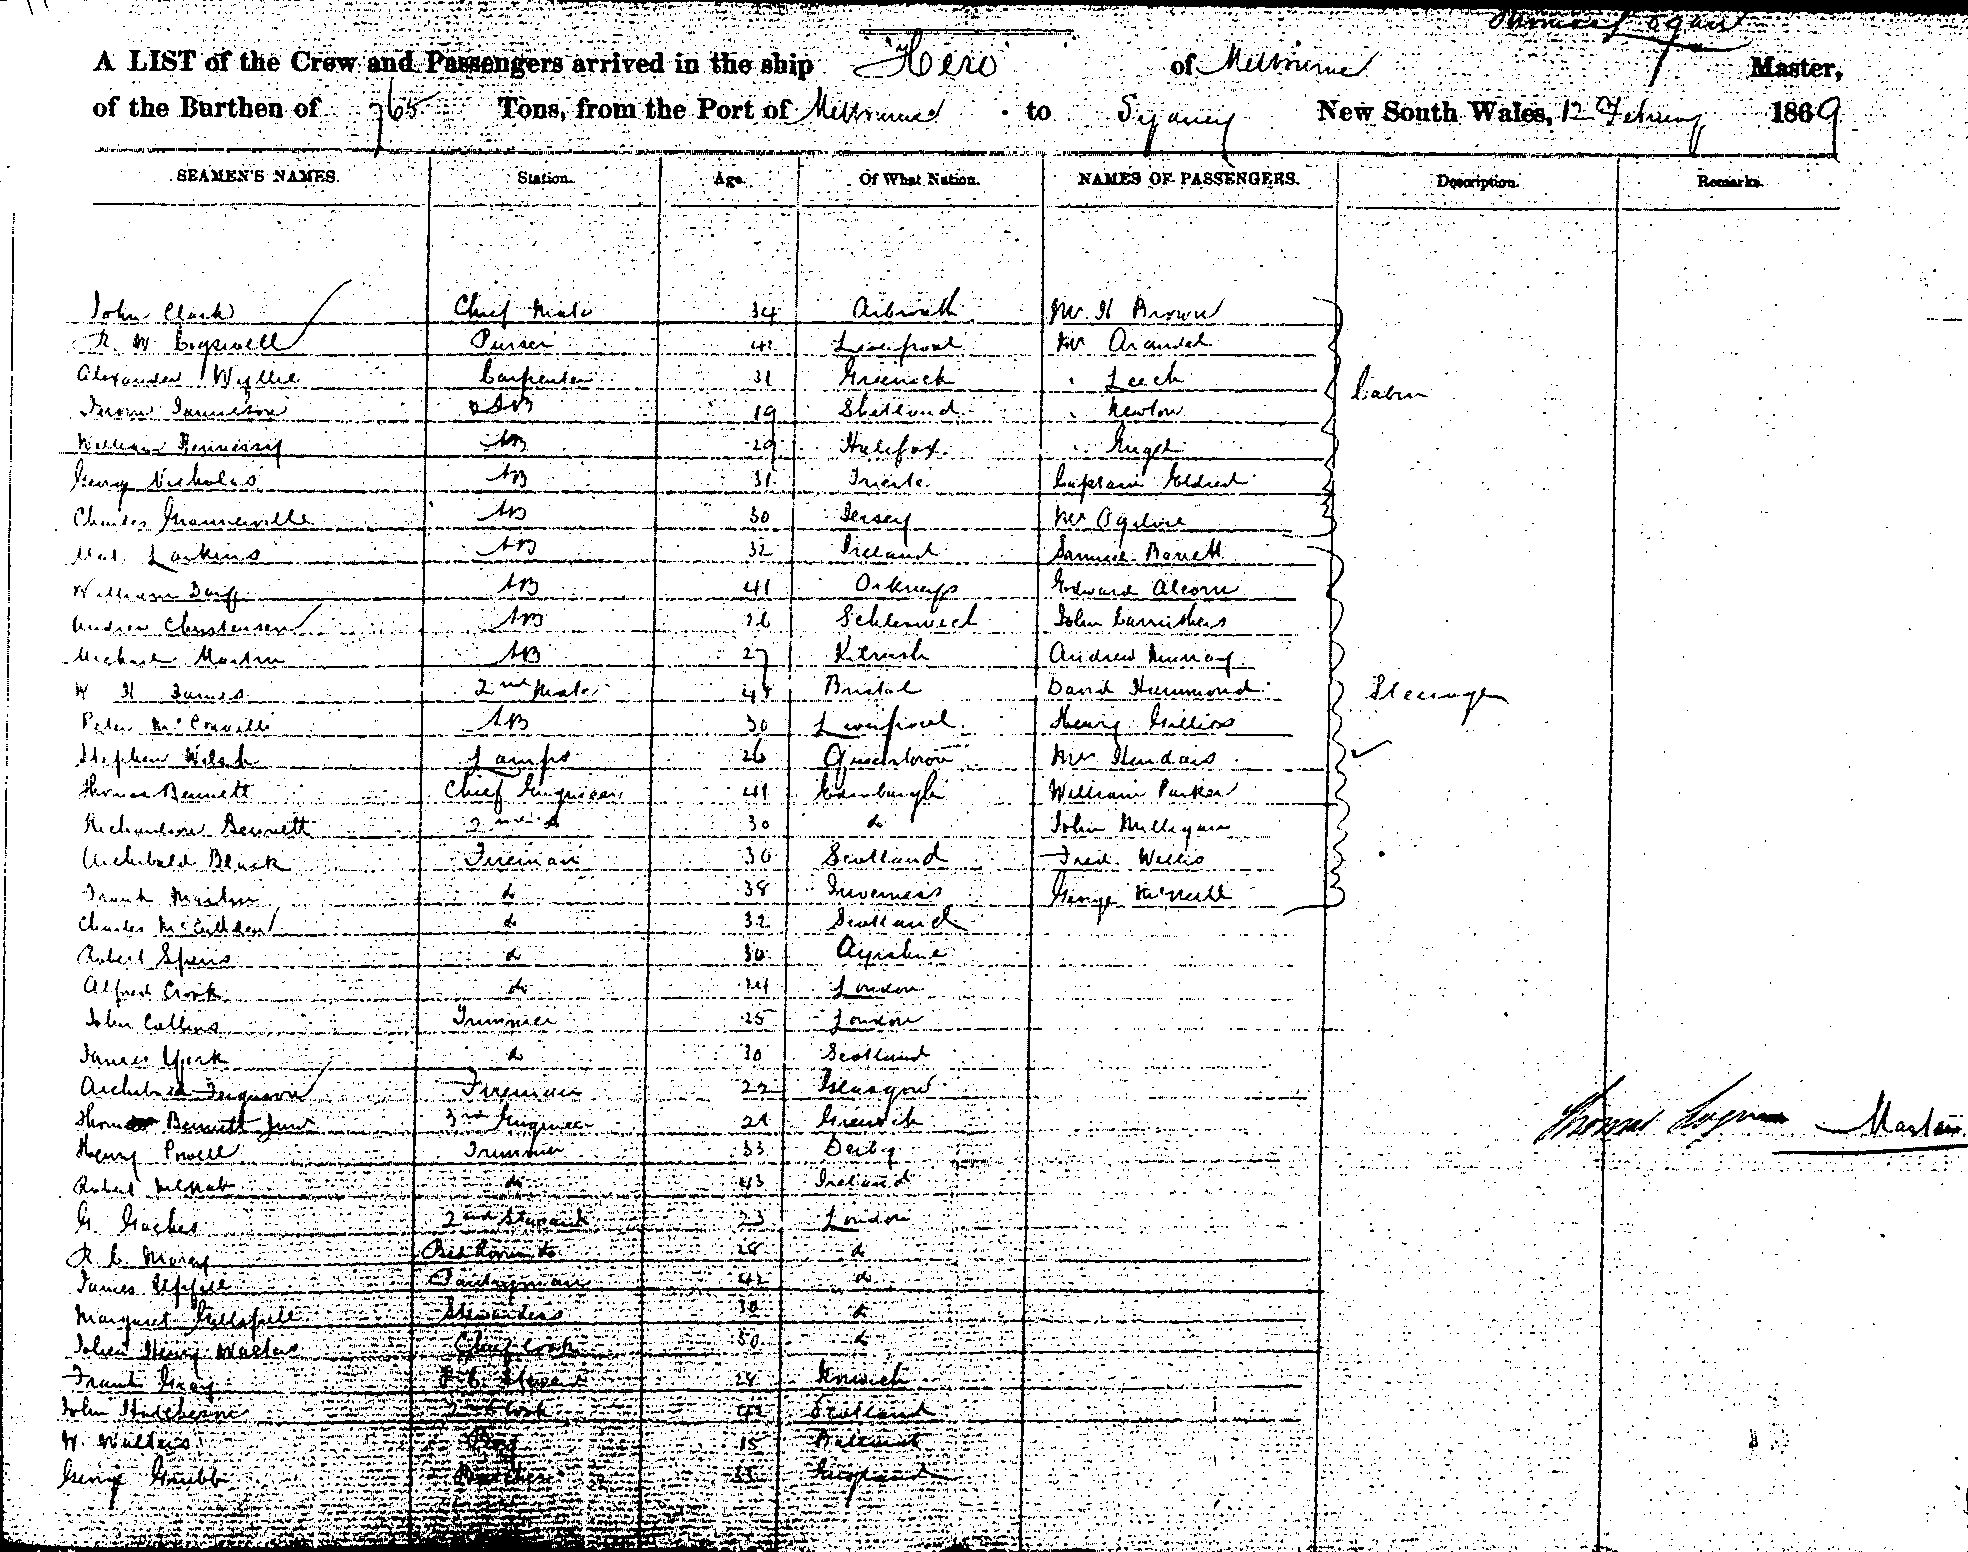 Thomas Logan
A LIST of the Crew and Passengers arrived in the ship "Hero" of Melbourne Master,
of the Burthen of 765 Tons, from the Port of Melbourne to Sydney New South Wales, 12 February 1869
SEAMEN'S NAMES. Station. Age. Of What Nation. NAMES OF PASSENGERS. Description. Remarks.
John Clark Chief Mate 34 Arbroath Mr H Brown
R. W Cogswell Purser 42 Liverpool Mr Arundel
Alexander Wyllie Carpenter 31 Greenock " Leech Cabin
Jamieson AB 19 Shetland " Newton
William Hennessy AB 29 Halifax "
Henry Nicholas AB 31 Trieste Captain Eldred
Charles Granville AB 30 Jersey Mr Ogilvie
Larkins AB 32 Ireland Samuel Barrett
William AB 41 Orkneys Edward Alcorn
Andrew Christensen AB 26 John Carruthers
Michael Martin AB 27 Kilrush Andrew Murray
W H James 2nd Mate 48 Bristol David Hammond Steerage
Peter McConville AB 30 Liverpool Henry
Stephen Welsh Lamps 26 Queenstown Mr
Thomas Bennett Chief Engineer 41 Edinburgh William Parker
Richardson Bennett 2nd do 30 do John Milligan
Archibald Black Fireman 30 Scotland Fred. Willis
Frank do 38 Inverness George McNeill
Charles do 32 Scotland
Robert Spiers do 30 Ayrshire
Alfred Crook do London
John Collins Trimmer 25 London
James York do 30 Scotland
Archibald Ferguson Fireman 22 Glasgow
Thomas Bennett Junr 3rd Engineer 21 Greenock Thomas Logan Master
Henry Powell Trimmer 33 Derby
Robert McNab do 43 Ireland
G. Gaches 2nd Steward 23 London
R. C. Morey Bed Room do 28 do
James Pantryman 42 do
Margaret Gillespie Stewardess 30 do
John Henry Masters Chief Cook 50 do
Frank Gray Steward 28 Norwich
John Hutcheson 2nd Cook 42 Scotland
W Walters Boy 15 Ballarat
George Grubb Butcher England